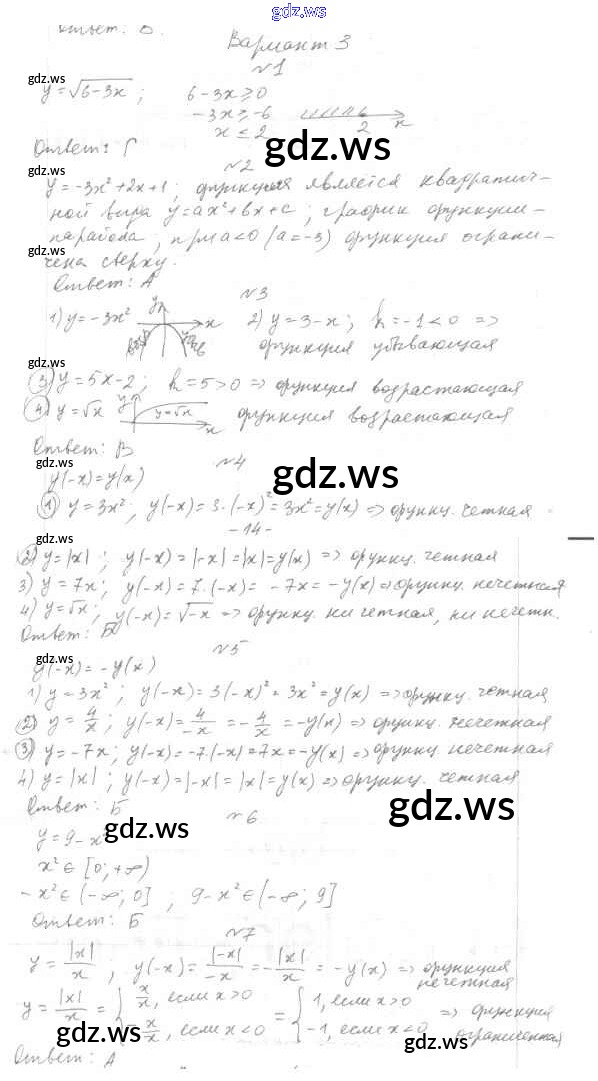 gdz.ws
ответ: б.
Вариант 3
gdz.ws
№1
y=√6-3x ; 6-3x≥0
-3x≥-6
x≤2 2 x
gdz.ws
Ответ: Г
gdz.ws
№2
y=-3x²+2x+1; функция является квадратич-
ной вида y=ax²+bx+c; график функции -
парабола, при a<0 (a=-3) функция ограни-
gdz.ws
чена сверху.
Ответ: А
№3
1) y=-3x² y x возр убыв 2) y=3-x; k=-1<0 =>
функция убывающая
gdz.ws
3) y=5x-2; k=5>0 => функция возрастающая
4) y=√x y y=√x x функция возрастающая
Ответ: В
gdz.ws
№4
gdz.ws
y(-x)=y(x)
1) y=3x²; y(-x)=3·(-x)²=3x²=y(x) => функц. четная
-14-
gdz.ws
2) y=|x|; y(-x)=|-x|=|x|=y(x) => функц. четная
3) y=7x; y(-x)=7·(-x)=-7x=-y(x) => функц. нечетная
4) y=√x; y(-x)=√-x => функц. ни четная, ни нечетн.
Ответ: Б
№5
gdz.ws
y(-x)=-y(x)
1) y=3x²; y(-x)=3(-x)²=3x²=y(x) => функц. четная
2) y=4/x; y(-x)=4/-x=-4/x=-y(x) => функц. нечетная
gdz.ws
3) y=-7x; y(-x)=-7·(-x)=7x=-y(x) => функц. нечетная
4) y=|x|; y(-x)=|-x|=|x|=y(x) => функц. четная
Ответ: Б
gdz.ws
№6
gdz.ws
y=9-x²
x²∈[0;+∞)
-x²∈(-∞;0] ; 9-x²∈(-∞;9]
Ответ: Б
№7
y=|x|/x, y(-x)=|-x|/-x=-|x|/x=-y(x) => функция
нечетная
gdz.ws
y=|x|/x={x/x, если x>0 = {1, если x>0 => функция
-x/x, если x<0 -1, если x<0 ограниченная
gdz.ws
Ответ: А
gdz.ws